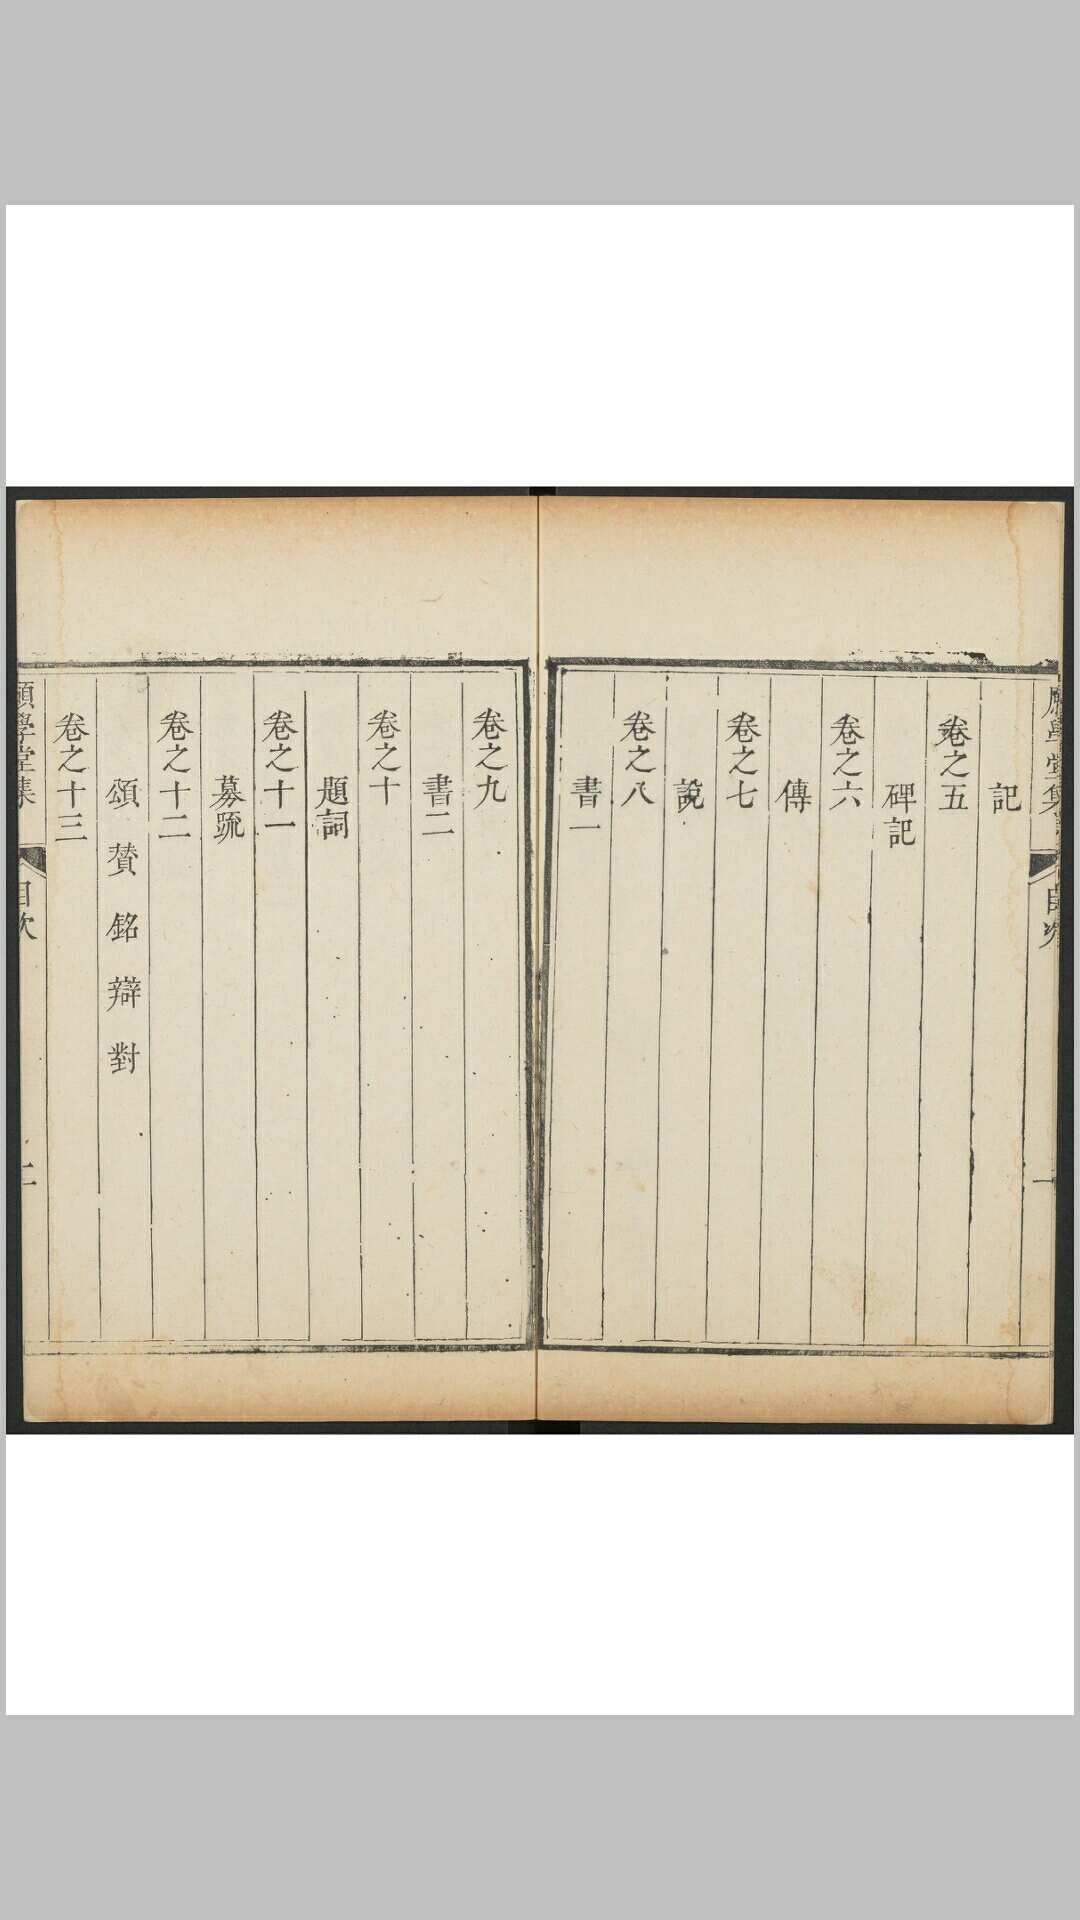 記
卷之五
碑記
卷之六
傳
卷之七
說
卷之八
書一
卷之九
書二
卷之十
題詞
卷之十一
募疏
卷之十二
頌 贊 銘 辯 對
卷之十三
願學堂集
目次
二